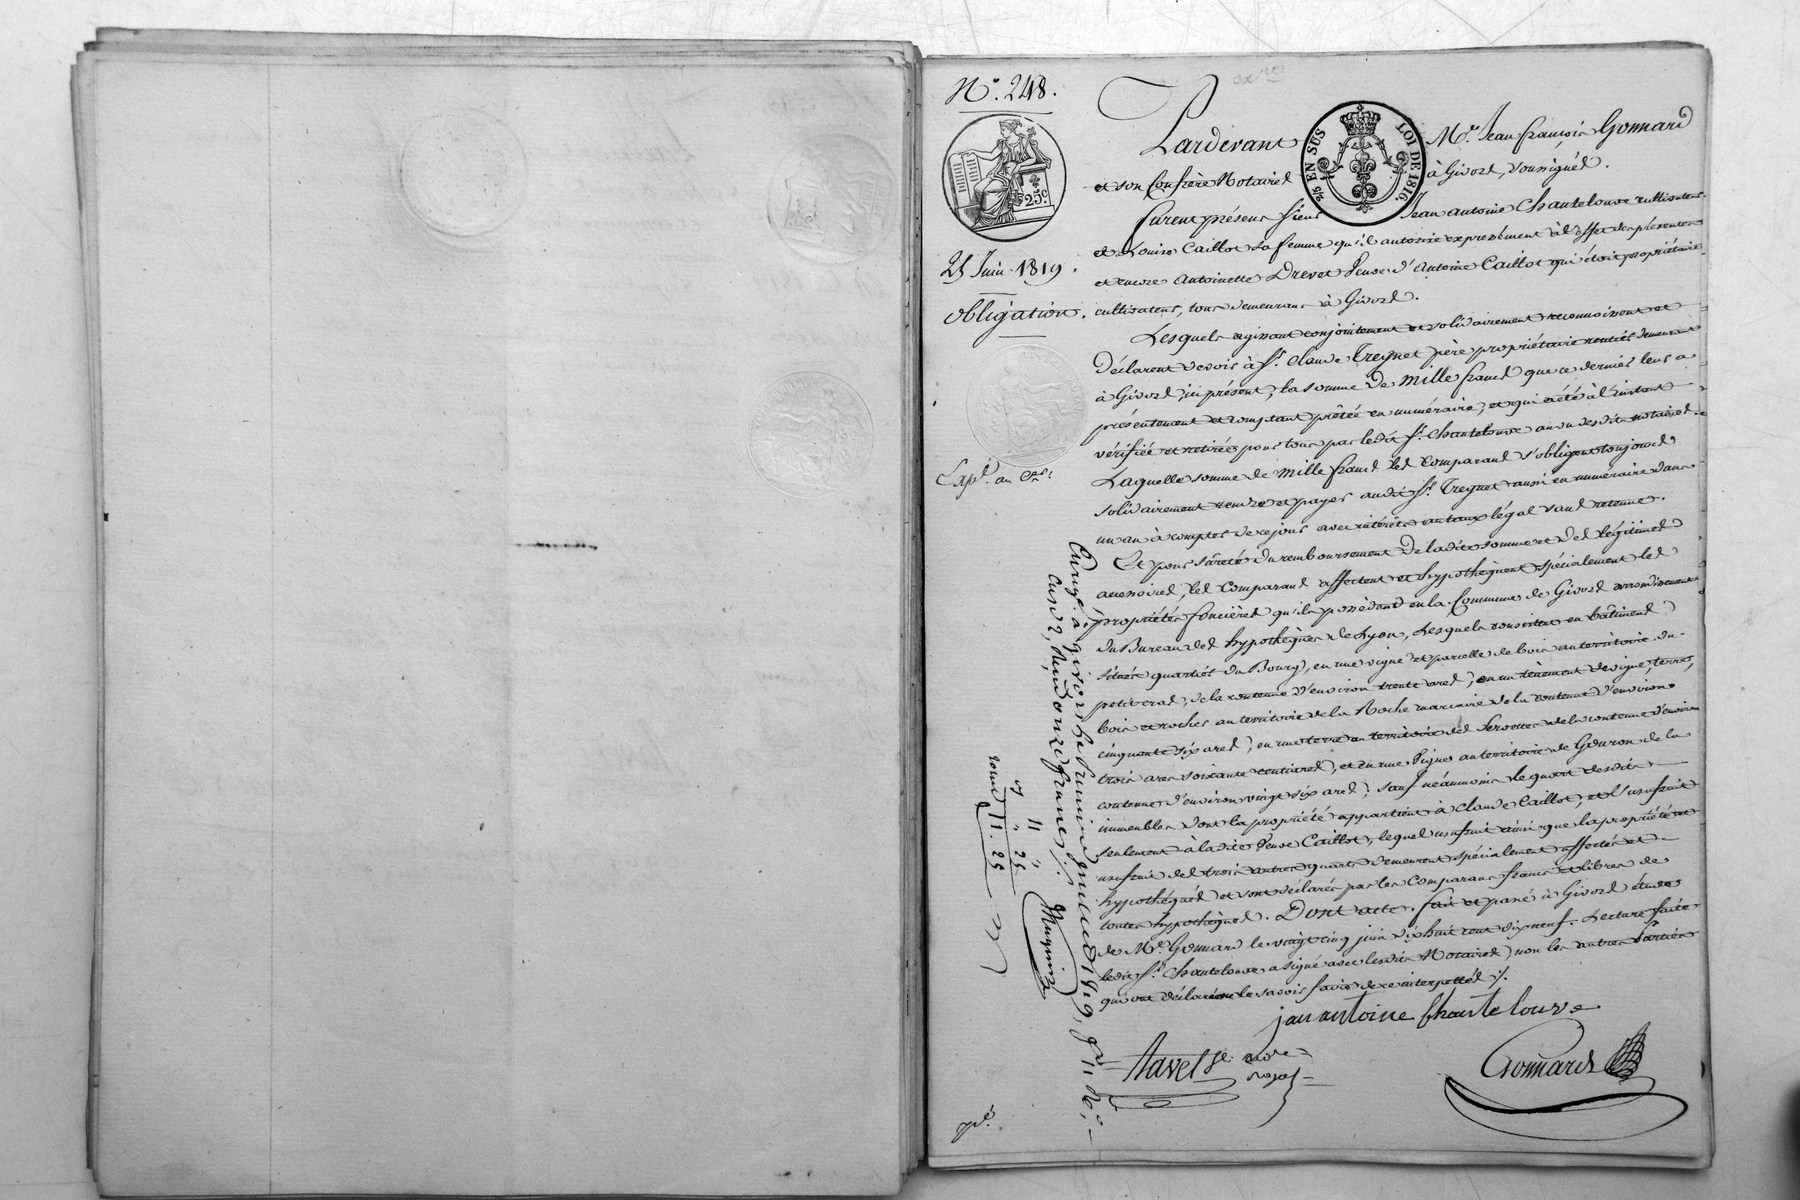 N.º 248.
25.C
25 Juin 1819.
obligation.
Expé. au Cer.
EN SUS
LOI DE 1816.
Pardevant Me. Jean françois Gonnard
et son Confrère Notaires à Givors, soussignés.
furent présens sieur Jean antoine Chantelouve cultivateur
et Louise Caillot sa femme qu'il autorise expressément à l'effet des présentes
et encore Antoinette Drevet Veuve d'Antoine Caillot qui étoit propriétaire
cultivateur, tous demeurans à Givors.
Lesquels agissant conjointement et solidairement reconnoissent et
déclarent devoir à Sr. Claude Treynet père propriétaire rentier demeurant
à Givors, ici présent, la somme de Mille francs que ce dernier leur a
présentement et comptant prêtée en numéraire, et qui a été à l'instant
vérifiée et retirée pour tous par ledit Sr. Chantelouve au vu desdits notaires.
Laquelle somme de Mille francs les Comparans s'obligent toujours
solidairement rendre et payer audit Sr. Treynet aussi en numéraire dans
un an à compter de ce jour avec intérêts au taux légal sans retenue.
Et pour sûreté du remboursement de ladite somme et des légitimes
accessoires, les Comparans affectent et hypothèquent spécialement les
propriétés foncières qu'ils possèdent en la Commune de Givors arrondissement
du Bureau des hypothèques de Lyon, Lesquels consistent en bâtimens
situés quartier du Bourg, en une vigne et parcelle de bois au territoire du
petit cras, de la contenue d'environ trente ares, en un tènement de vigne, terre,
bois et roches au territoire de la Roche de la contenue d'environ
cinquante six ares, en une terre au territoire des de la contenue d'environ
trois ares soixante centiares, et en une Vigne au territoire de Gouron de la
contenue d'environ vingt six ares; sauf néanmoins le quart desdits
immeubles dont la propriété appartient à Claude Caillot, et l'usufruit
seulement à ladite Veuve Caillot, lequel usufruit ainsi que la propriété et
usufruit des trois autres quarts demeurent spécialement affectés et
hypothéqués et sont déclarés par les Comparans francs et libres de
toutes hypothèques. Dont acte. fait et passé à Givors étude
de Me. Gonnard le vingt cinq juin dix huit cent dix neuf. Lecture faite
ledit Sr. Chantelouve a signé avec lesdits Notaires, non les autres parties
qui ont déclaré ne le savoir faire de ce interpellés ./.
jan antoine Chante louve
Tavel
Gonnard
Enregé. à givors le premier juillet 1819,
cas 2, reçu onze francs
11
25
11. 25